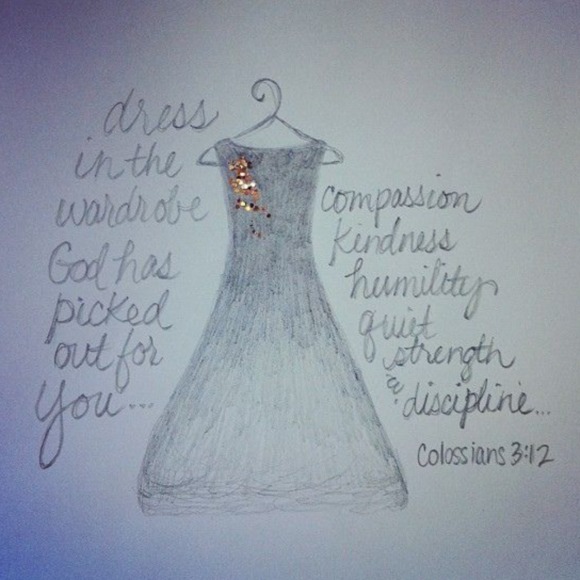 dress
in the
wardrobe
God has
picked
out for
you...
compassion
kindness
humility
quiet
strength
& discipline...
Colossians 3:12